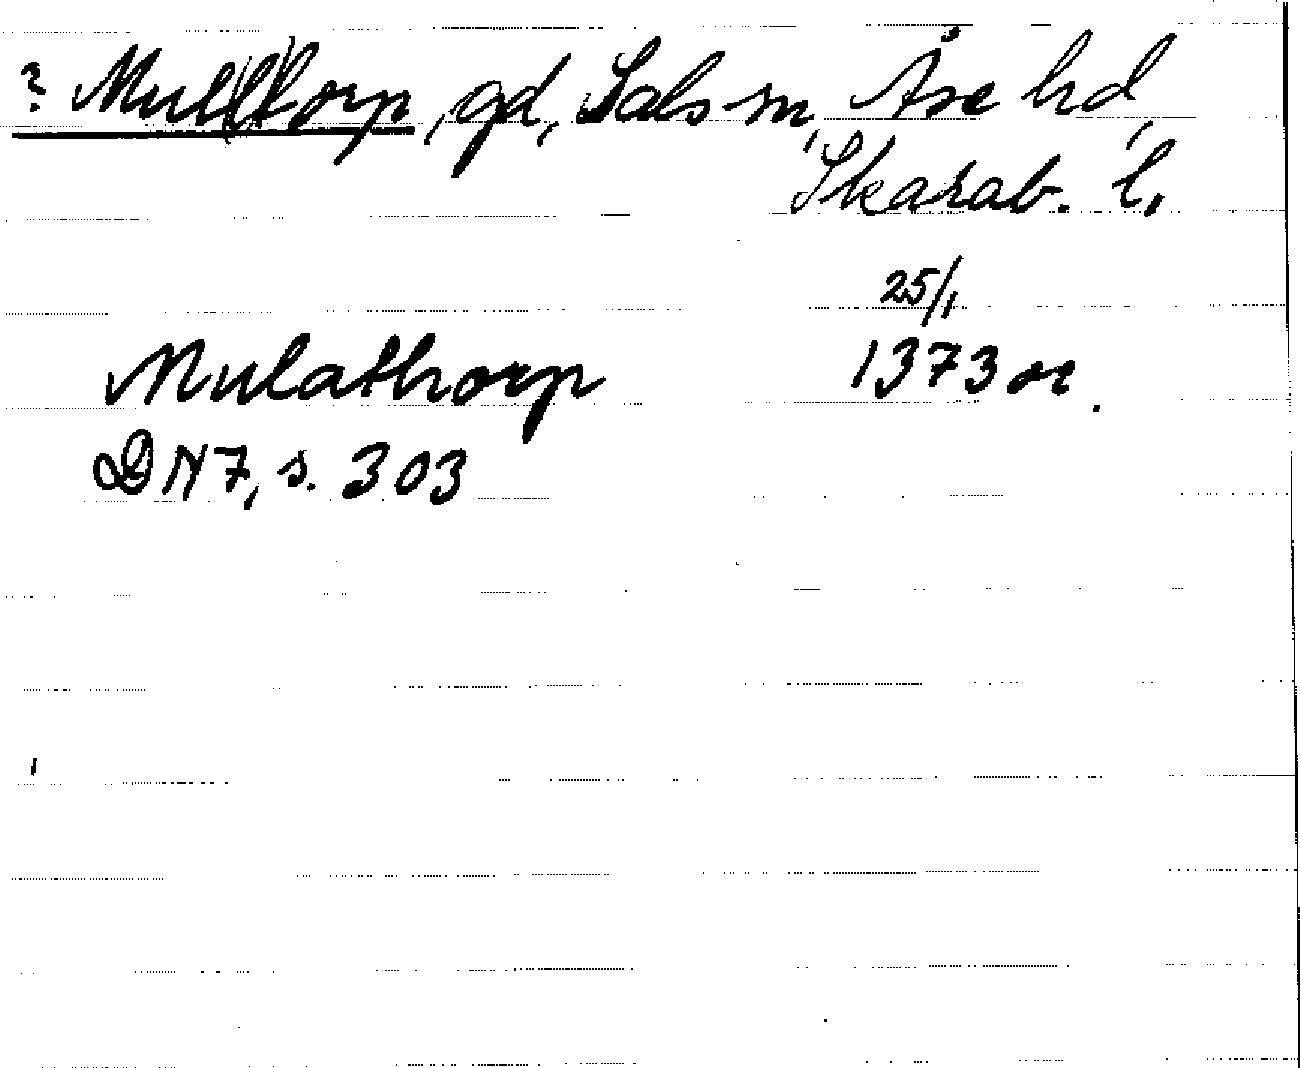 ? Mull(l)torp, gd, Sals sn, Åse hd,
Skarab. l,
25/1
Mulathorp 1373 or.
DN 7, s. 303